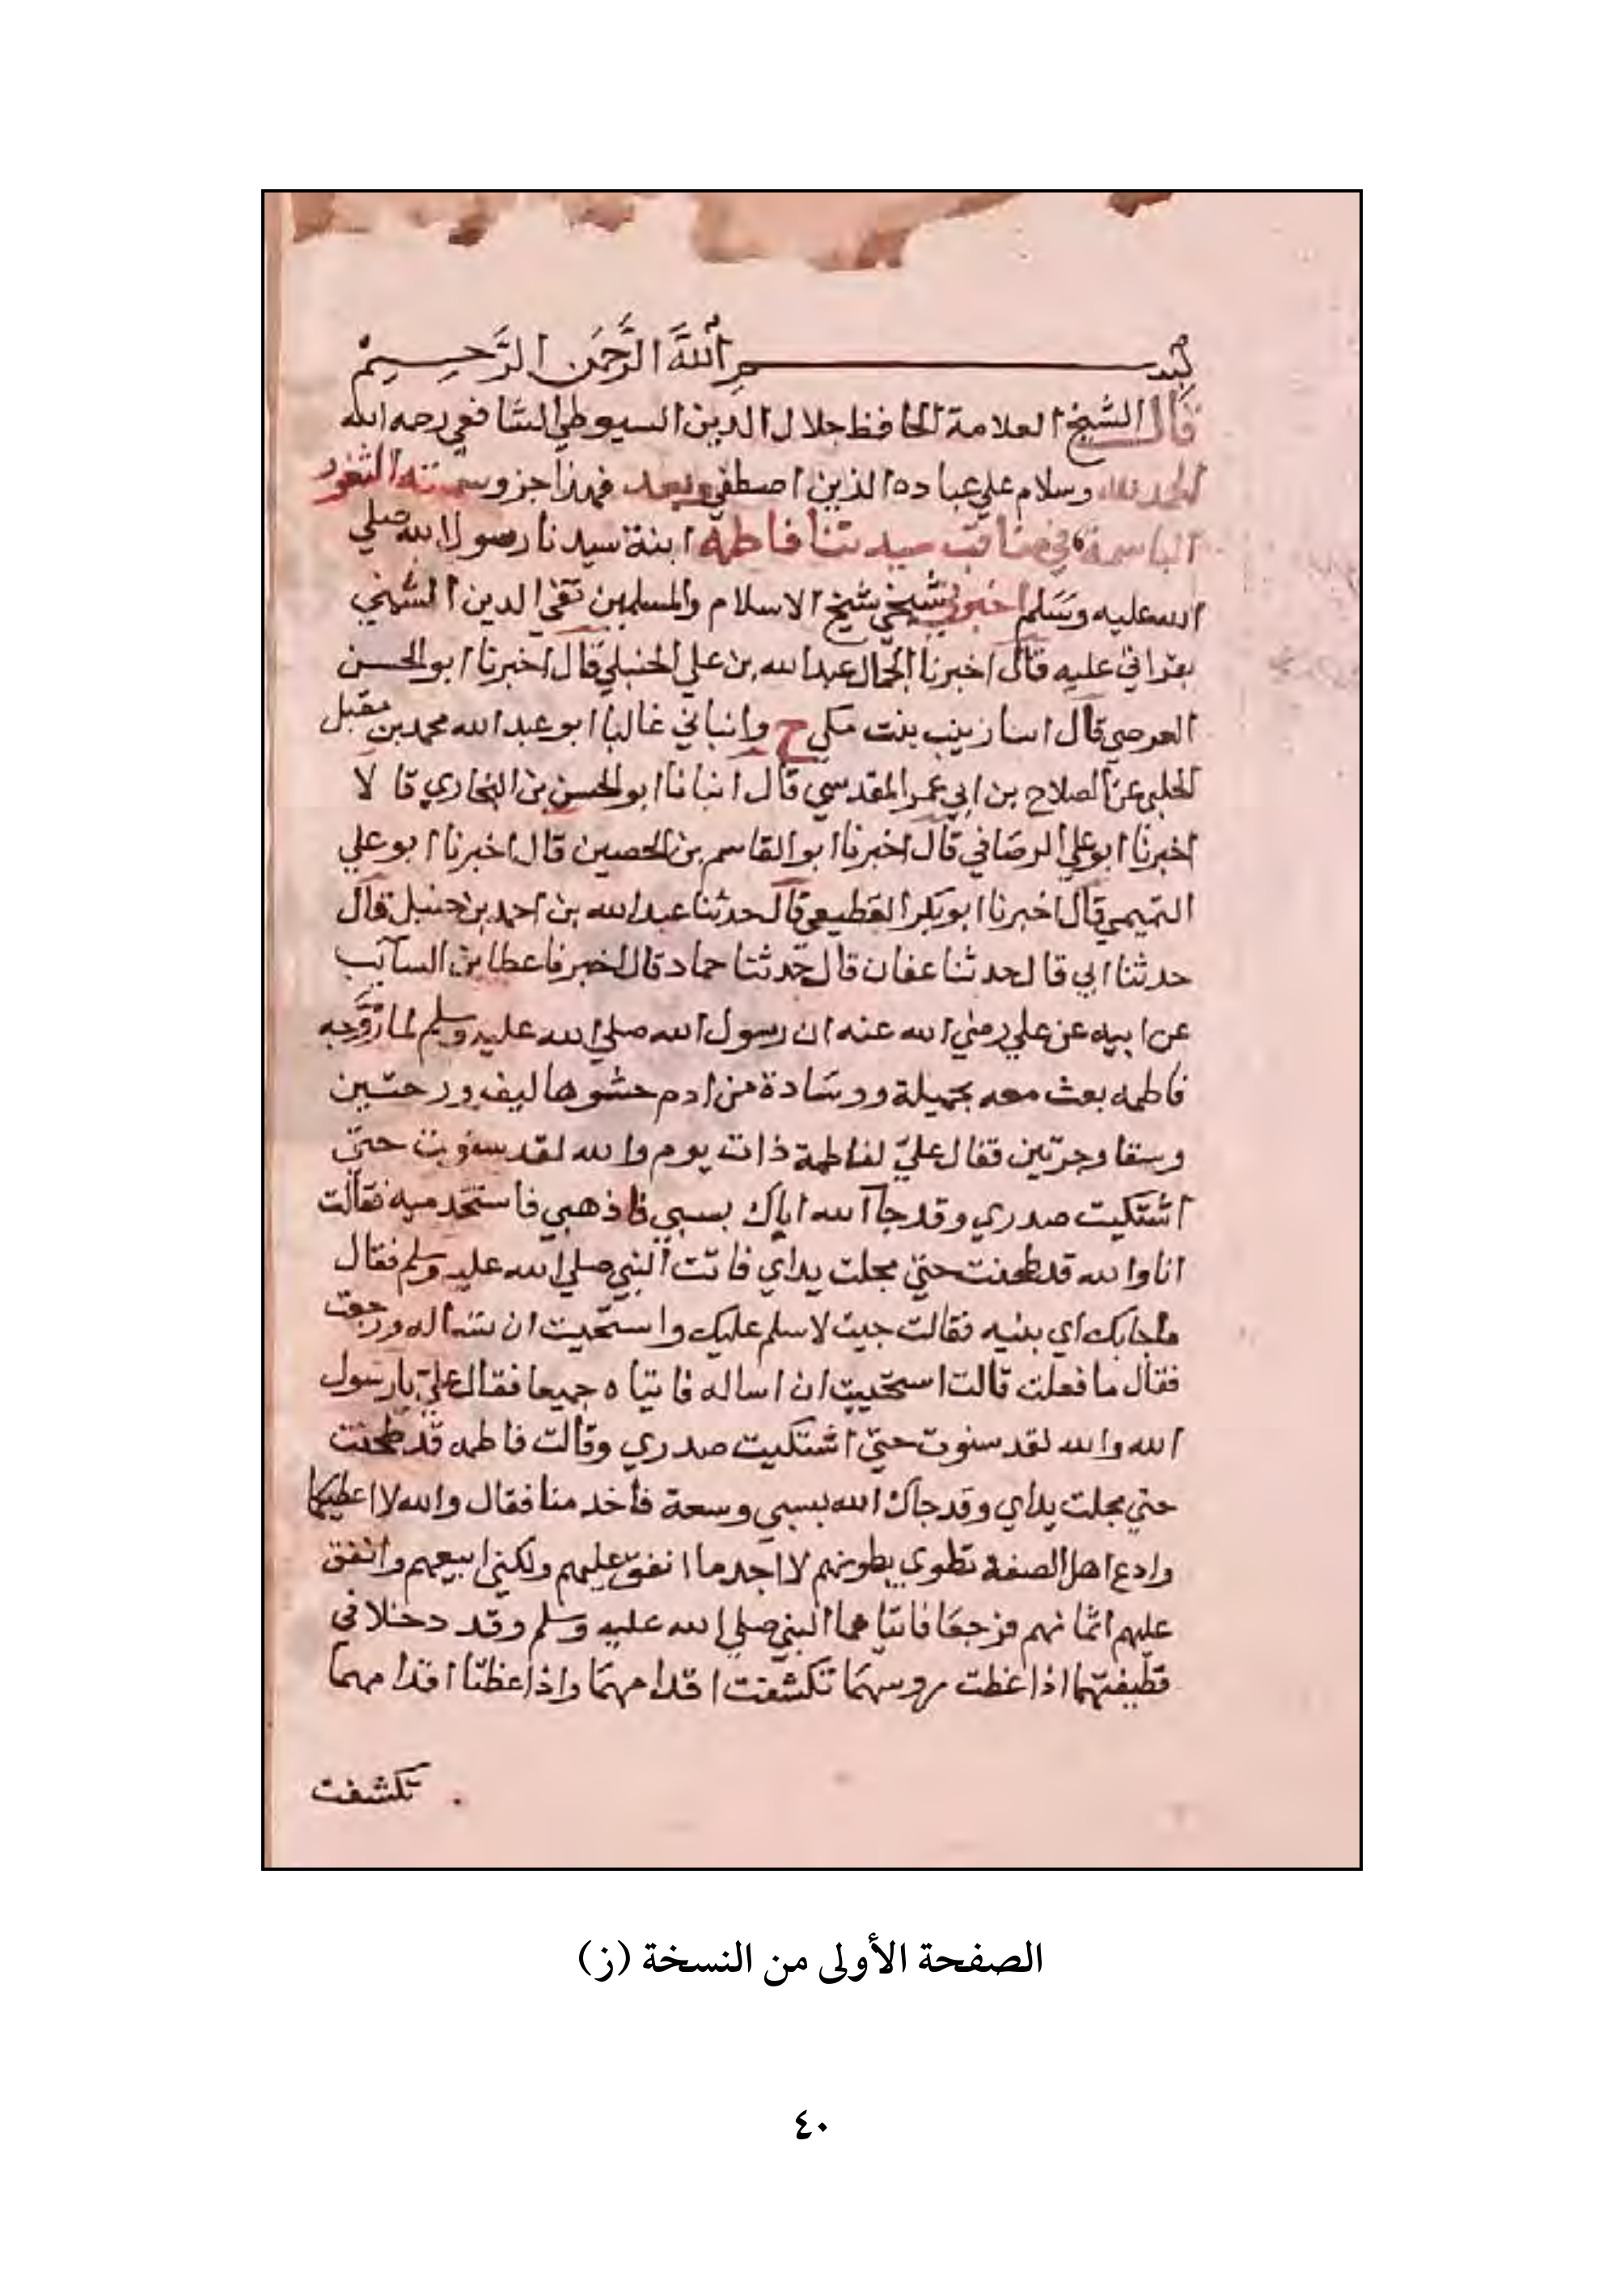 بسم الله الرحمن الرحيم
قال الشيخ العلامة الحافظ جلال الدين السيوطي الشافعي رحمه الله
الحمد لله وسلام علي عباده الذين اصطفي وبعد فهذا جزو سميته الثغور
الباسمة في مناقب سيدتنا فاطمة ابنة سيدنا رسول الله صلي
الله عليه وسلم اخبرني شيخي شيخ الاسلام والمسلمين تقي الدين الشمني
بقراتي عليه قال اخبرنا الجمال عبد الله بن علي الحنبلي قال اخبرنا ابو الحسن
العرضي قال زينب بنت مكي ح وانباني غالبا ابو عبد الله محمد بن مقبل
الحلبي عن الصلاح بن ابي عمر المقدسي قال انبانا ابو الحسن بن البخاري قا لا
اخبرنا ابو علي الرصافي قال اخبرنا ابو القاسم بن الحصين قال اخبرنا ابو علي
التميمي قال اخبرنا ابو بكر القطيعي قال حدثنا عبد الله بن احمد بن حنبل قال
حدثنا ابي قال حدثنا عفان قال حدثنا حماد قال اخبرنا عطا بن السآئب
عن ابيه عن علي رضي الله عنه ان رسول الله صلي الله عليه وسلم لما زوجه
فاطمه بعث معه بخميلة ووسادة من ادم حشوها ليف ورحتين
وسقا وجرتين فقال علي لفاطمة ذات يوم والله لقد سنوت حتي
اشتكيت صدري وقد جآ الله اباك بسبي فاذهبي فاستخدميه فقالت
انا والله قد طحنت حتي مجلت يداي فاتت النبي صلي الله عليه وسلم فقال
ماجابك اي بنيه فقالت جيت لاسلم عليك واستحيت ان تساله ورجعت
فقال ما فعلت قالت استحييت ان اساله فاتياه جميعا فقال علي يارسول
الله والله لقد سنوت حتي اشتكيت صدري وقالت فاطمه قد طحنت
حتي مجلت يداي وقد جاك الله بسبي وسعة فاخدمنا فقال والله لا اعطيكما
وادع اهل الصفة تطوي بطونهم لا اجد ما انفق عليهم ولكني ابيعهم وانفق
عليهم اثمانهم فرجعا فاتياهما النبي صلي الله عليه وسلم وقد دخلا في
قطيفتهما اذا غطت روسهما تكشفت اقدامهما واذا غطتا اقدامهما
تكشفت
الصفحة الأولى من النسخة (ز)
٤٠